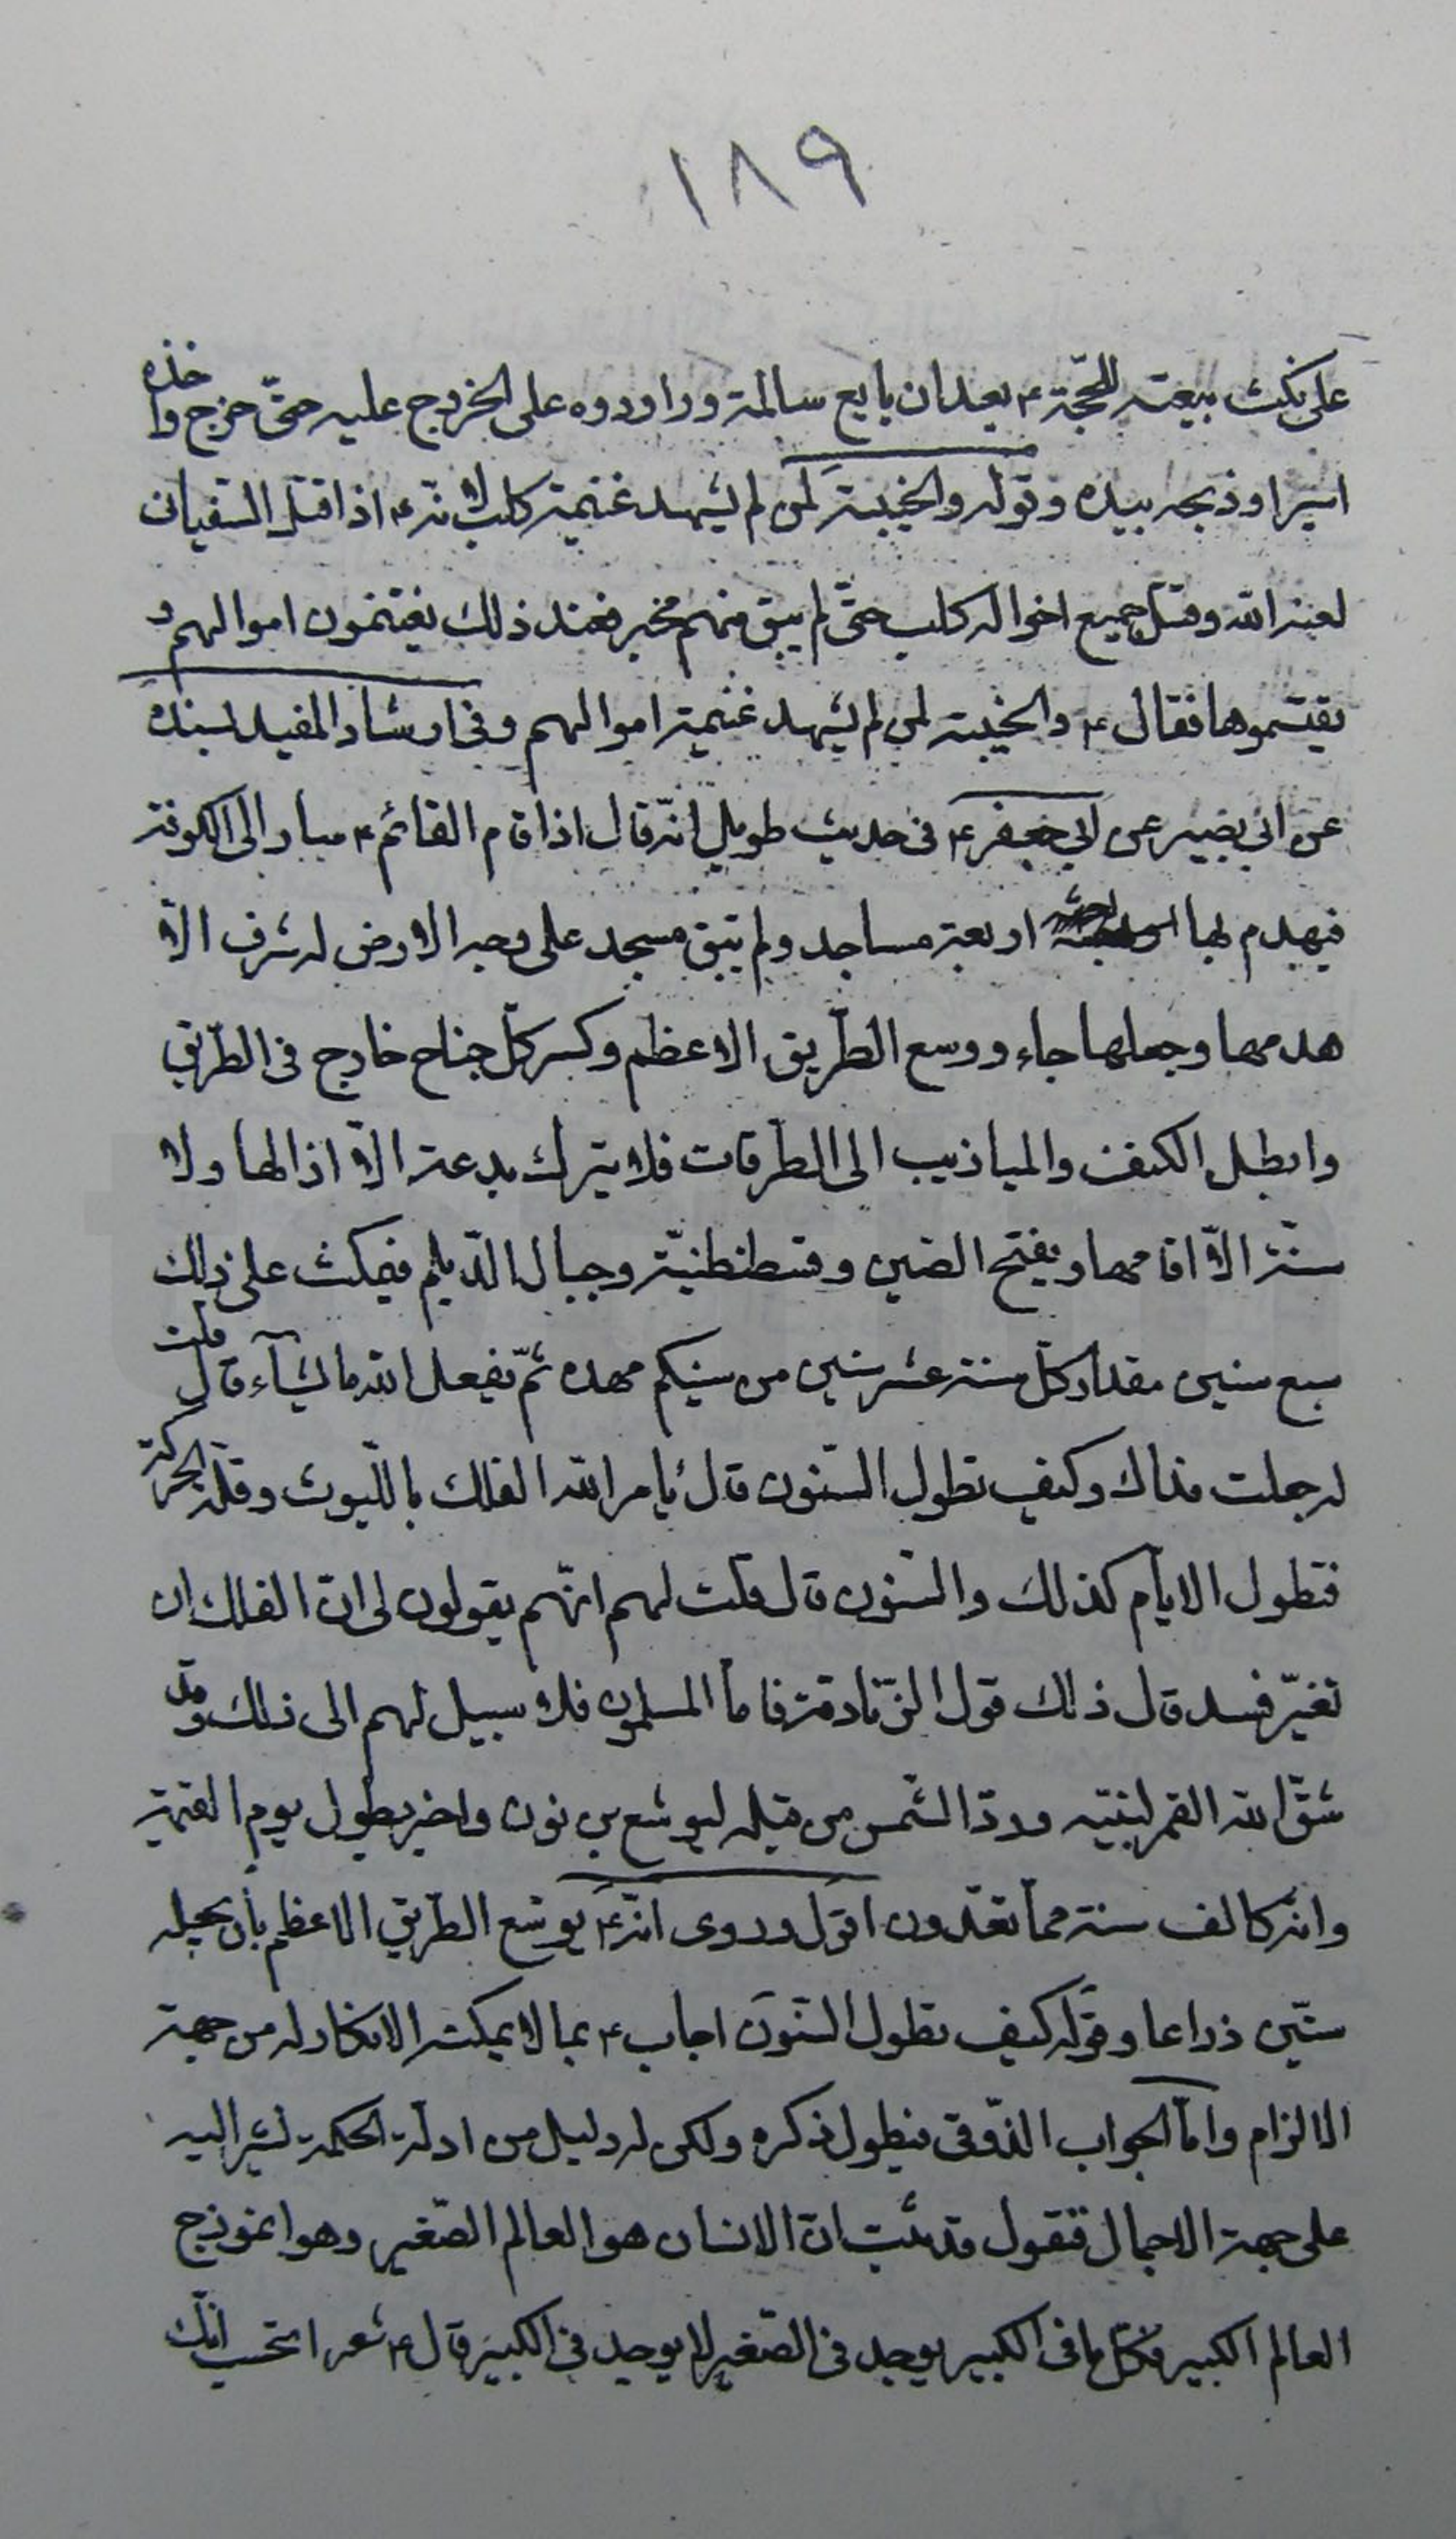 ١٨٩
على نكث بيعته للحجّة ٤ بعد ان بايع سالمة وراودوه على الخروج عليه حتّى خرج واخذه
اسيرا وذبحه بيده وقوله والخيبة لمن لم يشهد غنيمة كلب لانّه ٤ اذا قتل السّفيانى
لعنه الله وقتل جميع اخواله كلب حتّى لم يبق منهم مخبر فعند ذلك يغتنمون اموالهم و
يقتسموها فقال ٤ والخيبة لمن لم يشهد غنيمة اموالهم وفى ارشاد المفيد بسنده
عن ابى بصير عن ابى جعفر ٤ فى حديث طويل انّه قال اذا قام القائم ٤ سار الى الكوفة
فيهدم لها اربعة مساجد ولم يبق مسجد على وجه الارض له شرف الّا
هدمها وجعلها جاء ووسع الطّريق الاعظم وكسر كلّ جناح خارج فى الطّريق
وابطل الكنف والميازيب الى الطّرقات فلا يترك بدعة الّا ازالها ولا
سنّة الّا اقامها ويفتح الصّين وقسطنطنيّة وجبال الدّيلم فيمكث على ذلك
سبع سنين مقدار كلّ سنة عشر سنين من سنيكم هذه ثمّ يفعل الله ما يشآء قال قلت
له جعلت فداك وكيف تطول السّنون قال يأمر الله الفلك باللّبوث وقلّة الحركة
فتطول الايّام كذلك والسّنون قال قلت لهم انّهم يقولون لى انّ الفلك ان
تغيّر فسد قال ذلك قول الزّنادقة فامّا المسلمون فلا سبيل لهم الى ذلك وقد
شقّ الله القمر لنبيّه وردّ الشّمس من قبله ليوشع بن نون واخبر بطول يوم القيمة
وانّه كالف سنة ممّا تعدّون اقول وروى انّه ٤ يوسّع الطّريق الاعظم بأن يجعله
ستّين ذراعا وقوله كيف تطول السّنون اجاب ٤ بما لا يمكنه الانكار له من جهة
الالزام وامّا الجواب الذّوقى فيطول ذكره ولكن له دليل من ادلّة الحكمة نشير اليه
على جهة الاجمال فنقول قد ثبت انّ الانسان هو العالم الصّغير وهو انموذج
العالم الكبير فكلّ ما فى الكبير يوجد فى الصّغير لا يوجد فى الكبير قال ٤ شعر اتحسب انّك